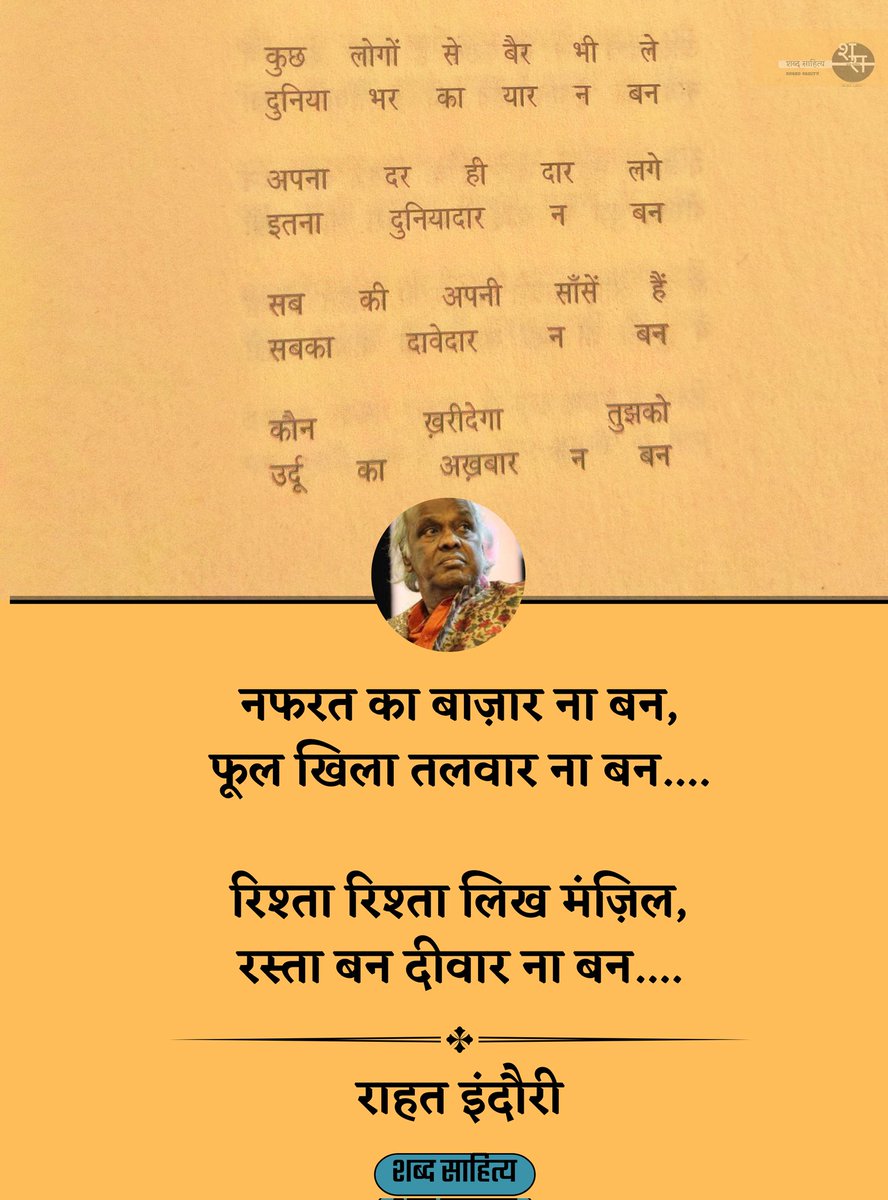 शब्द साहित्य
कुछ लोगों से बैर भी ले
दुनिया भर का यार न बन
अपना दर ही दार लगे
इतना दुनियादार न बन
सब की अपनी साँसें हैं
सबका दावेदार न बन
कौन ख़रीदेगा तुझको
उर्दू का अख़बार न बन
नफरत का बाज़ार ना बन,
फूल खिला तलवार ना बन....
रिश्ता रिश्ता लिख मंज़िल,
रस्ता बन दीवार ना बन....
राहत इंदौरी
शब्द साहित्य